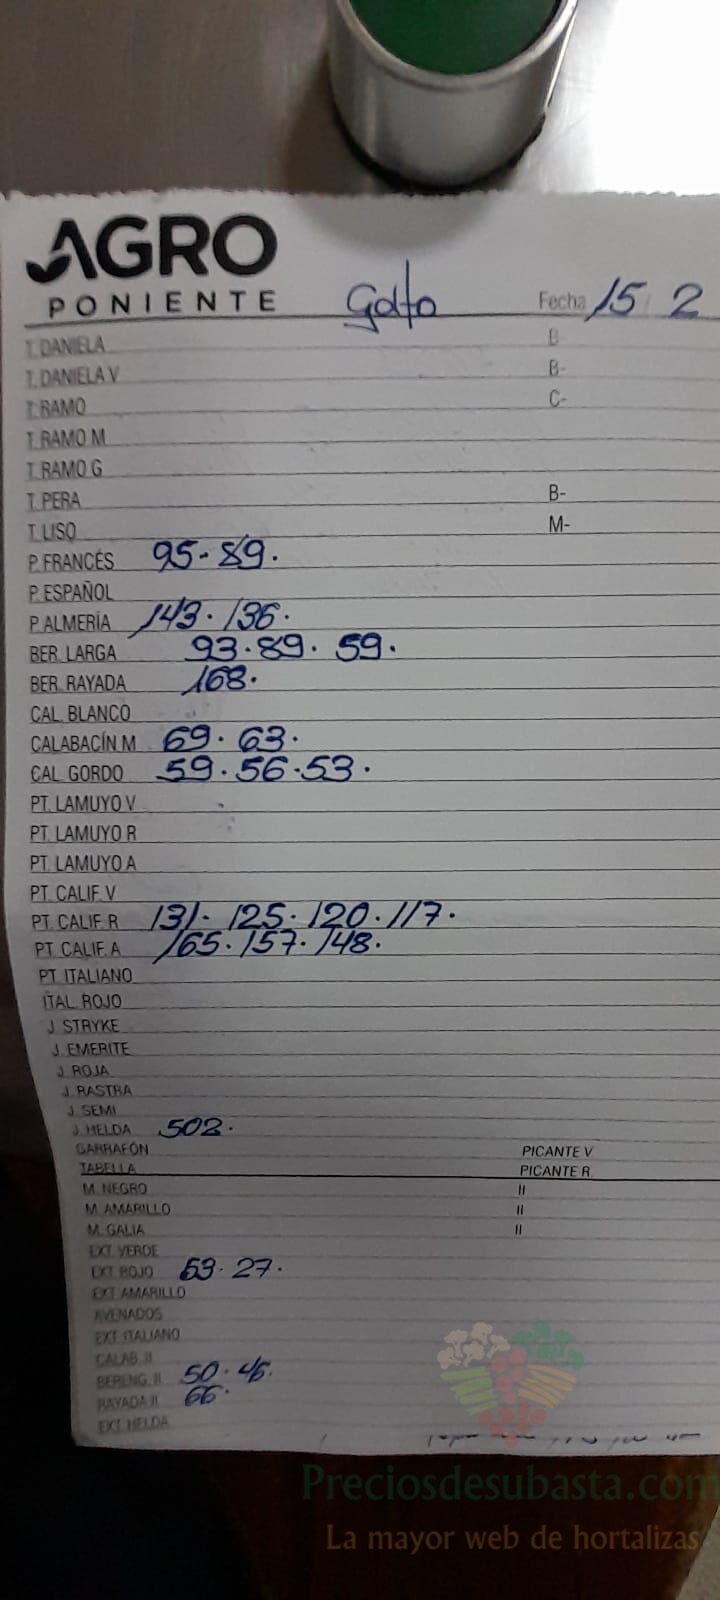 AGRO
PONIENTE Golfo Fecha 15 2
T. DANIELA B-
T. DANIELA V B-
T. RAMO C-
T. RAMO M
T. RAMO G
T. PERA B-
T. LISO M-
P. FRANCÉS 95. 89.
P. ESPAÑOL
P. ALMERÍA 143. 136.
BER. LARGA 93. 89. 59.
BER. RAYADA 168.
CAL. BLANCO
CALABACÍN M 69. 63.
CAL. GORDO 59. 56. 53.
PT. LAMUYO V
PT. LAMUYO R
PT. LAMUYO A
PT. CALIF. V
PT. CALIF. R 131. 125. 120. 117.
PT. CALIF. A 165. 157. 148.
PT. ITALIANO
ITAL. ROJO
J. STRYKE
J. EMERITE
J. ROJA
J. RASTRA
J. SEMI
J. HELDA 502.
GARRAFÓN PICANTE V
TABELLA PICANTE R
M. NEGRO II
M. AMARILLO II
M. GALIA II
EXT. VERDE
EXT. ROJO 53. 27.
EXT. AMARILLO
AVENADOS
EXT. ITALIANO
CALAB. II
BERENG. II 50. 46.
RAYADA II 66.
EXT. HELDA
Preciosdesubasta.com
La mayor web de hortalizas